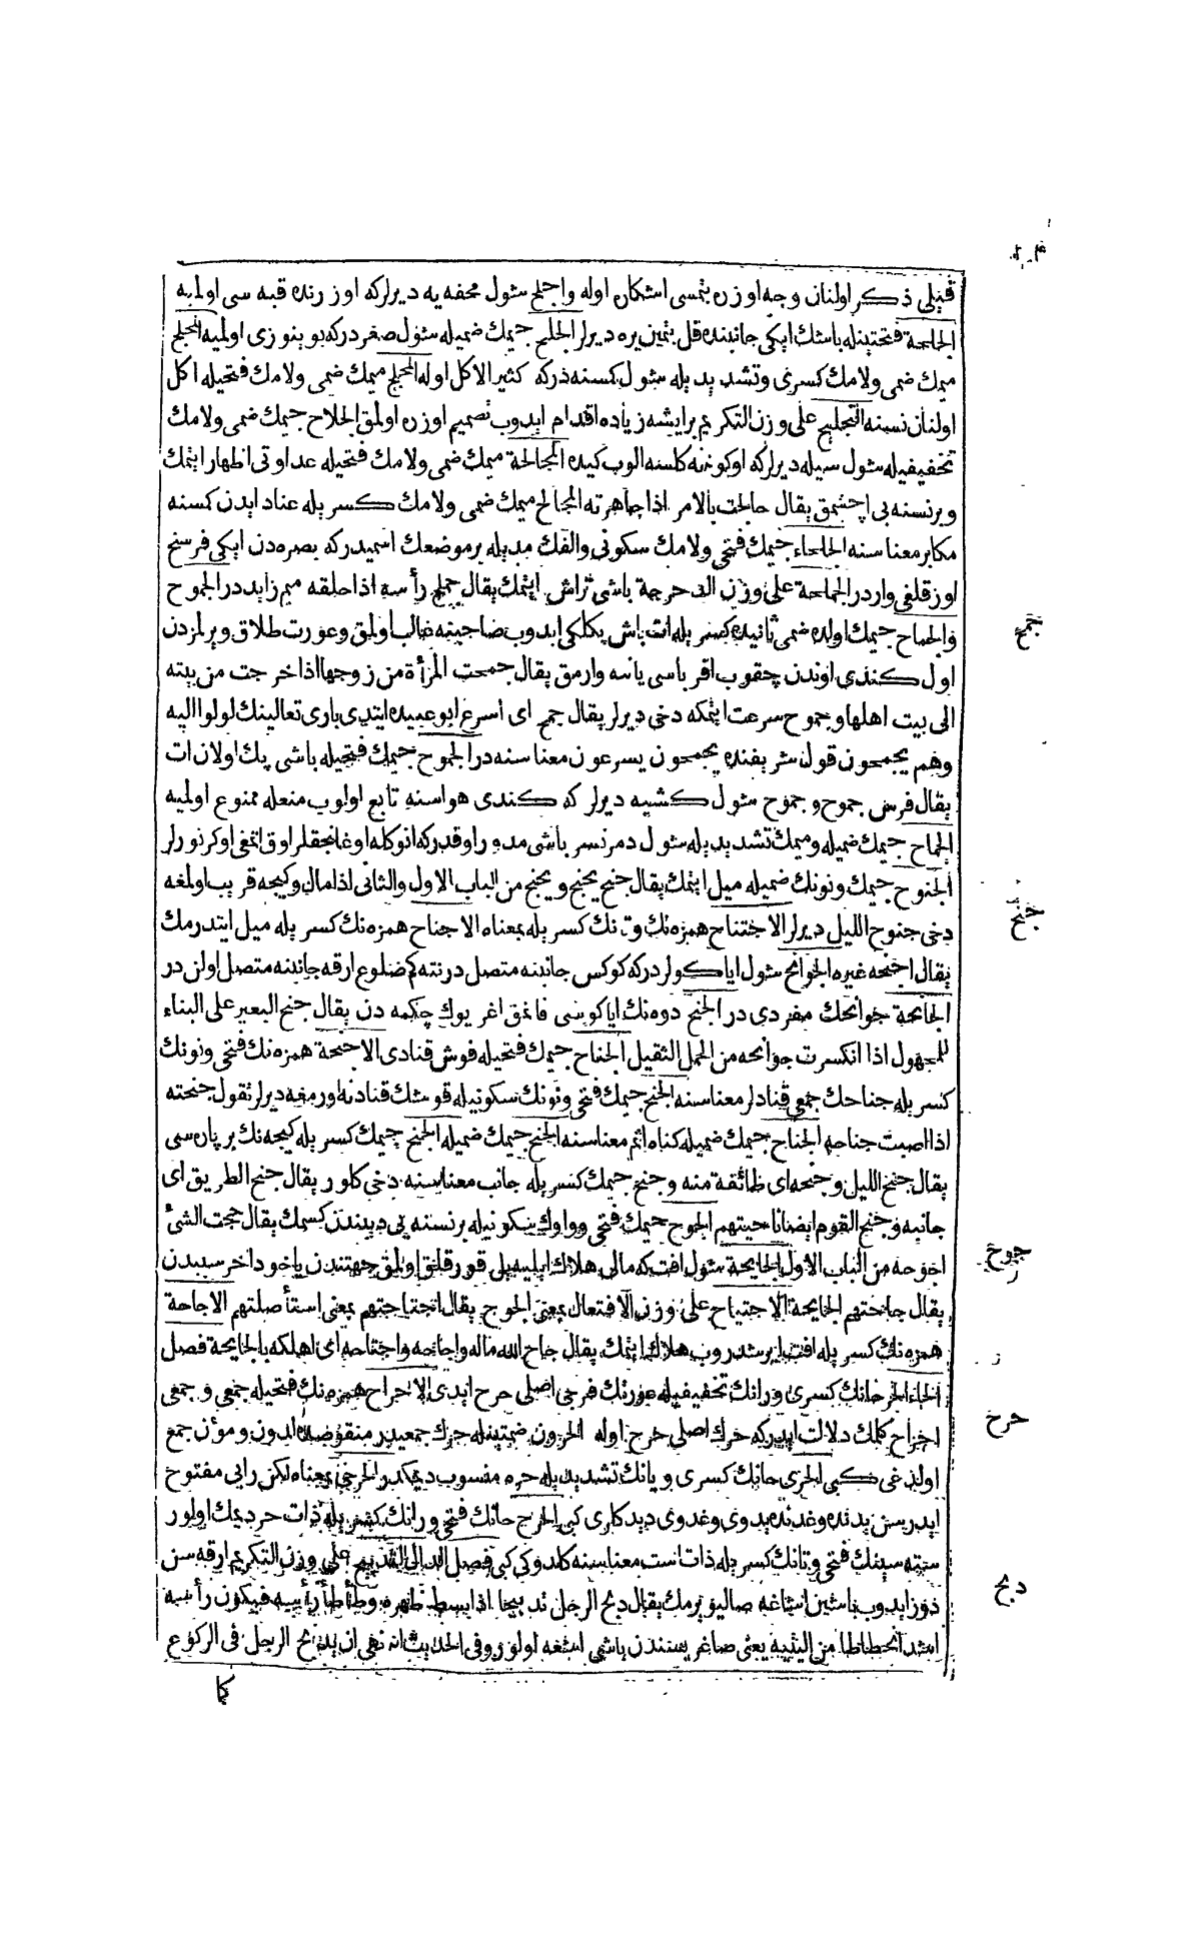 قبلى ذكر اولنان وجه اوزره بتمسى اسكان اوله واجلح شول محفه يه ديرلركه اوزرنده قبه سى اولميه
الجلحة فتحتينله باشك ايكى جانبنده قل بتمين يره ديرلر الجلح جيمك ضميله شول صغر دركه بوينوزى اولميه المجلح
ميمك ضمى ولامك كسرى وتشديديله شول كسنه در كه كثير الاكل اوله المجلح ميمك ضمى ولامك فتحيله اكل
اولنان نسنه التجليح على وزن التكريم برايشه زياده اقدام ايدوب تصميم اوزره اولمق الجلاح جيمك ضمى ولامك
تخفيفيله شول سيله ديرلركه اوكونه نه كلسنه الوب كيده المجالحة ميمك ضمى ولامك فتحيله عداوتى اظهار ايتمك
وبرنسنه يى اچشمق يقال جالحت بالامر اذا جاهرته المجالح ميمك ضمى ولامك كسريله عناد ايدن كسنه
مكابر معناسنه الجلحاء جيمك فتحى ولامك سكونى والفك مديله بر موضعك اسميدر كه بصره دن ايكى فرسخ
اوزقلغى واردر الجلمحة على وزن الدحرجة باشى تراش ايتمك يقال جلمح رأسه اذا حلقه ميم زايددر الجموح
والجماح جيمك اولده ضمى ثانيده كسريله ات باش پكلكى ايدوب صاحبنه غالب اولمق وعورت طلاق ويرلمزدن
اول كندى اوندن چقوب اقرباسى ياننه وارمق يقال جمحت المرأة من زوجها اذا خرجت من بيته
الى بيت اهلها وجموح سرعت ايتمكه دخى ديرلر يقال جمح اى اسرع ابوعبيده ايتدى بارى تعالينك لولوا اليه
وهم يجمحون قول شريفنده يجمحون يسرعون معناسنه در الجموح جيمك فتحيله باشى پك اولان ات
يقال فرس جموح وجموح شول كشيه ديرلر كه كندى هواسنه تابع اولوب منعله ممنوع اولميه
الجماح جيمك ضميله وميمك تشديديله شول دمرنسز باشى مدور اوقدركه انوكله اوغلانجقلر اوق اتمغى اوكرنورلر
الجنوح جيمك ونونك ضميله ميل ايتمك يقال جنح يجنح ويجنح من الباب الاول والثانى اذا مال وكيجه قريب اولمغه
دخى جنوح الليل ديرلر الاجتناح همزه نك وتنك كسريله بمعناه الاجناح همزه نك كسريله ميل ايتدرمك
يقال اجنحه غيره الجوانح شول اياكولردركه كوكس جانبنه متصلدرنته كم ضلوع ارقه جانبنه متصل اولندر
الجانحة جوانحك مفردى در الجنح دوه نك اياكوسى قاتق اغر يوك چكمه دن يقال جنح البعير على البناء
للمجهول اذا انكسرت جوانحه من الحمل الثقيل الجناح جيمك فتحيله قوش قنادى الاجنحة همزه نك فتحى ونونك
كسريله جناحك جمعى قنادلر معناسنه الجنح جيمك فتحى ونونك سكونيله قوشك قنادنه اورمغه ديرلر تقول جنحته
اذا اصبت جناحه الجناح جيمك ضميله كناه اثم معناسنه الجنح جيمك ضميله الجنح جيمك كسريله كيجه نك بر پاره سى
يقال جنح الليل وجنحه اى طائفة منه وجنح جيمك كسريله جانب معناسنه دخى كلور يقال جنح الطريق اى
جانبه وجنح القوم ايضا ناحيتهم الجوح جيمك فتحى وواوك سكونيله برنسنه يى ديبندن كسمك يقال جحت الشئ
اجوحه من الباب الاول الجايحة شول افت كه مالى هلاك ايليه يل قورقلق اولمق جهتندن ياخود اخر سببدن
يقال جاحتهم الجايحة الاجتياح على وزن الافتعال بمعنى الجوح يقال اجتاحتهم بمعنى استأصلتهم الاجاحة
همزه نك كسريله افت ايرشدروب هلاك ايتمك يقال جاح الله ماله واجاحه واجتاحه اى اهلكه بالجايحة فصل
الحاء الحر حانك كسرى ورانك تخفيفيله عورتك فرجى اصلى حرح ايدى الاحراح همزه نك فتحيله جمعى وجمعى
احراح كلمك دلالت ايدركه حرك اصلى حرح اوله الحرون ضمتينله حرك جمعيدر منقوصده لدون ومؤن جمع
اولدغى كبى الحرى حانك كسرى ويانك تشديديله حره منسوب ديمكدر الحرحى بمعناه لكن رايى مفتوح
ايدرسن يدنده وغدنده يدوى وغدوى ديدكلرى كبى الحرح حانك فتحى ورانك كسريله ذات حر ديمك اولور
سته سينك فتحى وتانك كسريله ذات است معناسنه كلدوكى كبى فصل الدال التدبيح على وزن التكريم ارقه سن
دوز ايدوب باشين اشاغه صاليويرمك يقال دبح الرجل تدبيحا اذا بسط ظهره وطأطأ رأسه فيكون رأسه
اشد انحطاطا من اليتيه يعنى صاغريسندن باشى اشغه اولور وفى الحديث انه نهى ان يدبح الرجل فى الركوع
كما
جمح
جنح
جوح
حرح
دبح